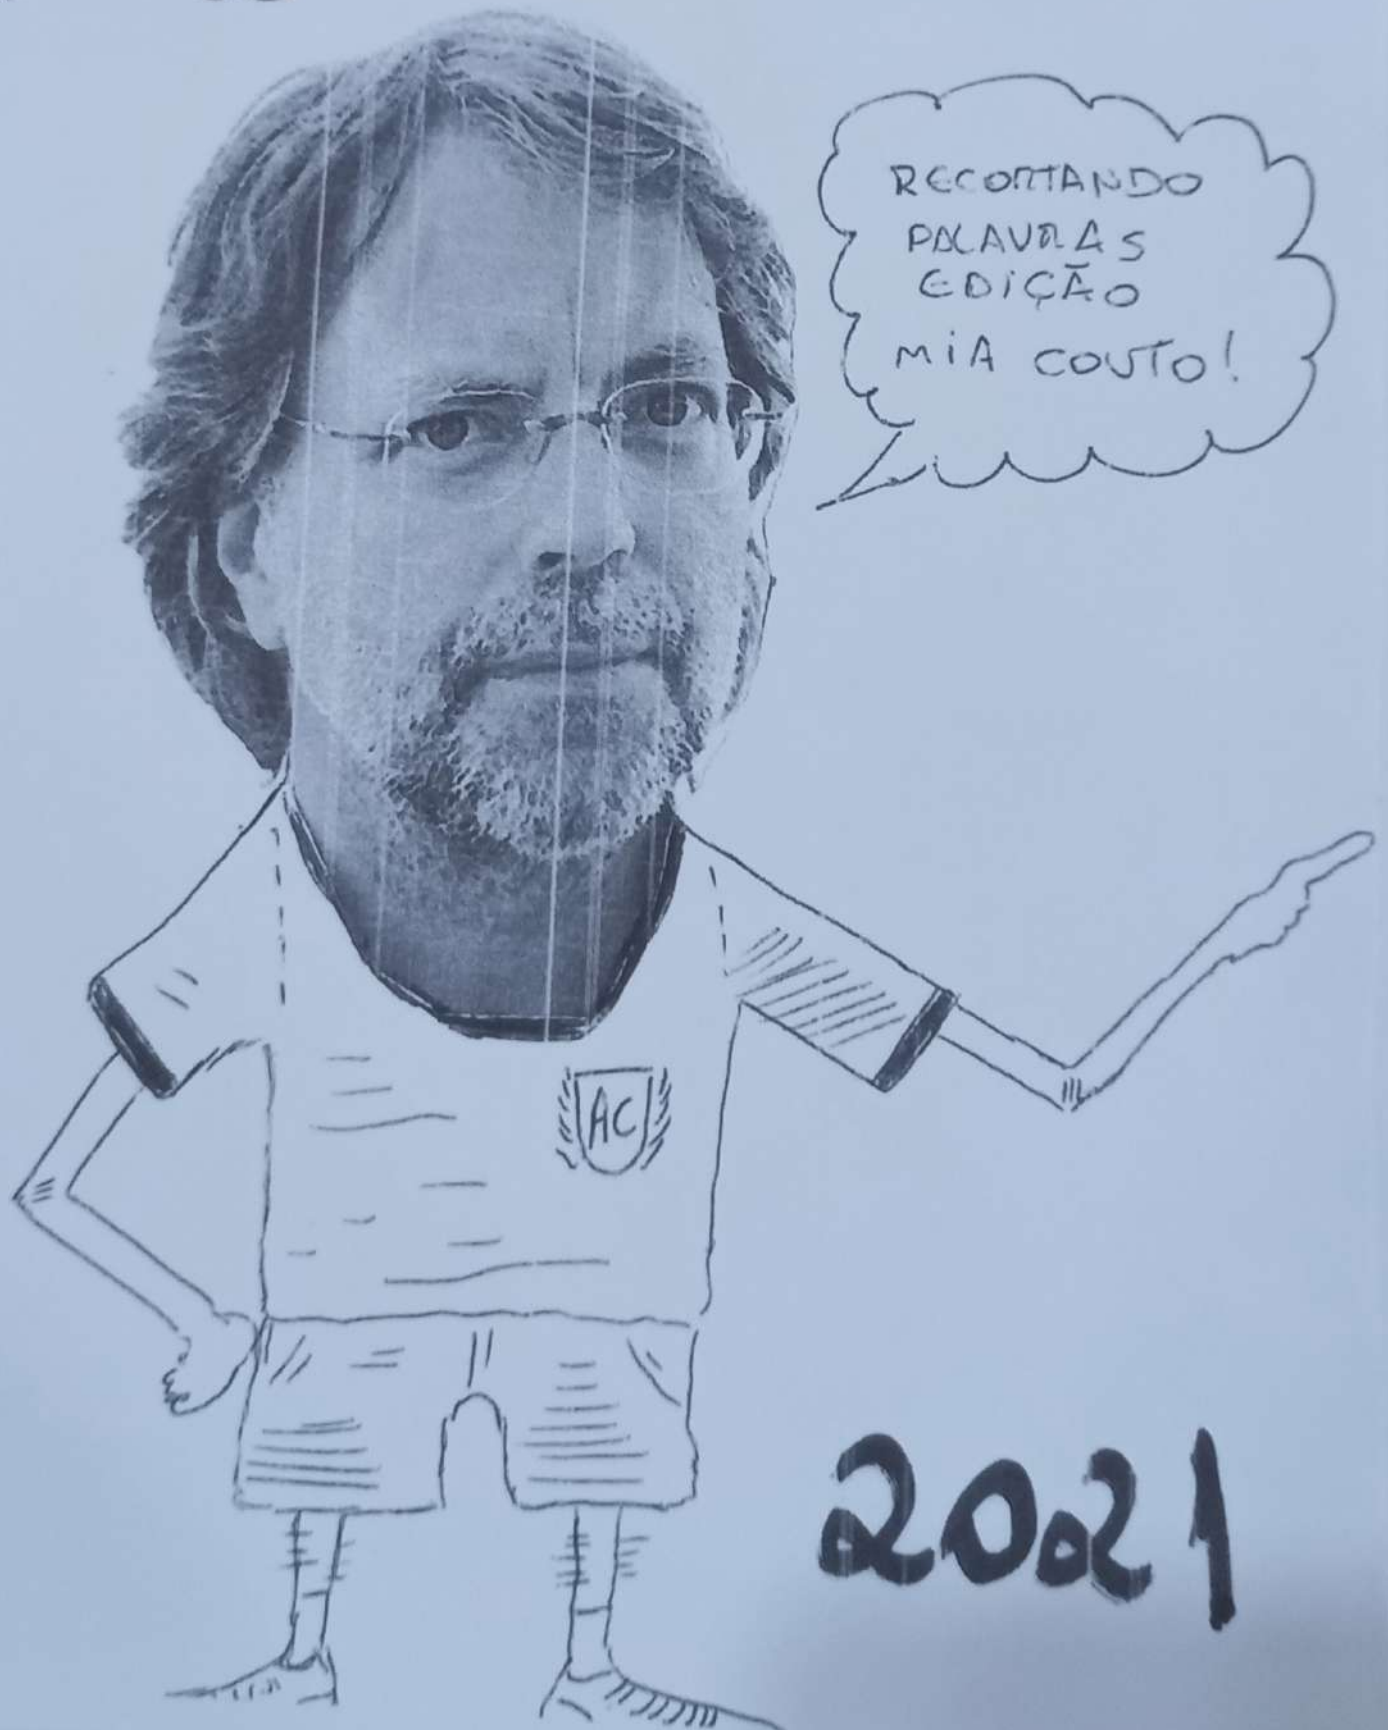 RECORTANDO
PALAVRAS
EDIÇÃO
MIA COUTO!
AC
2021